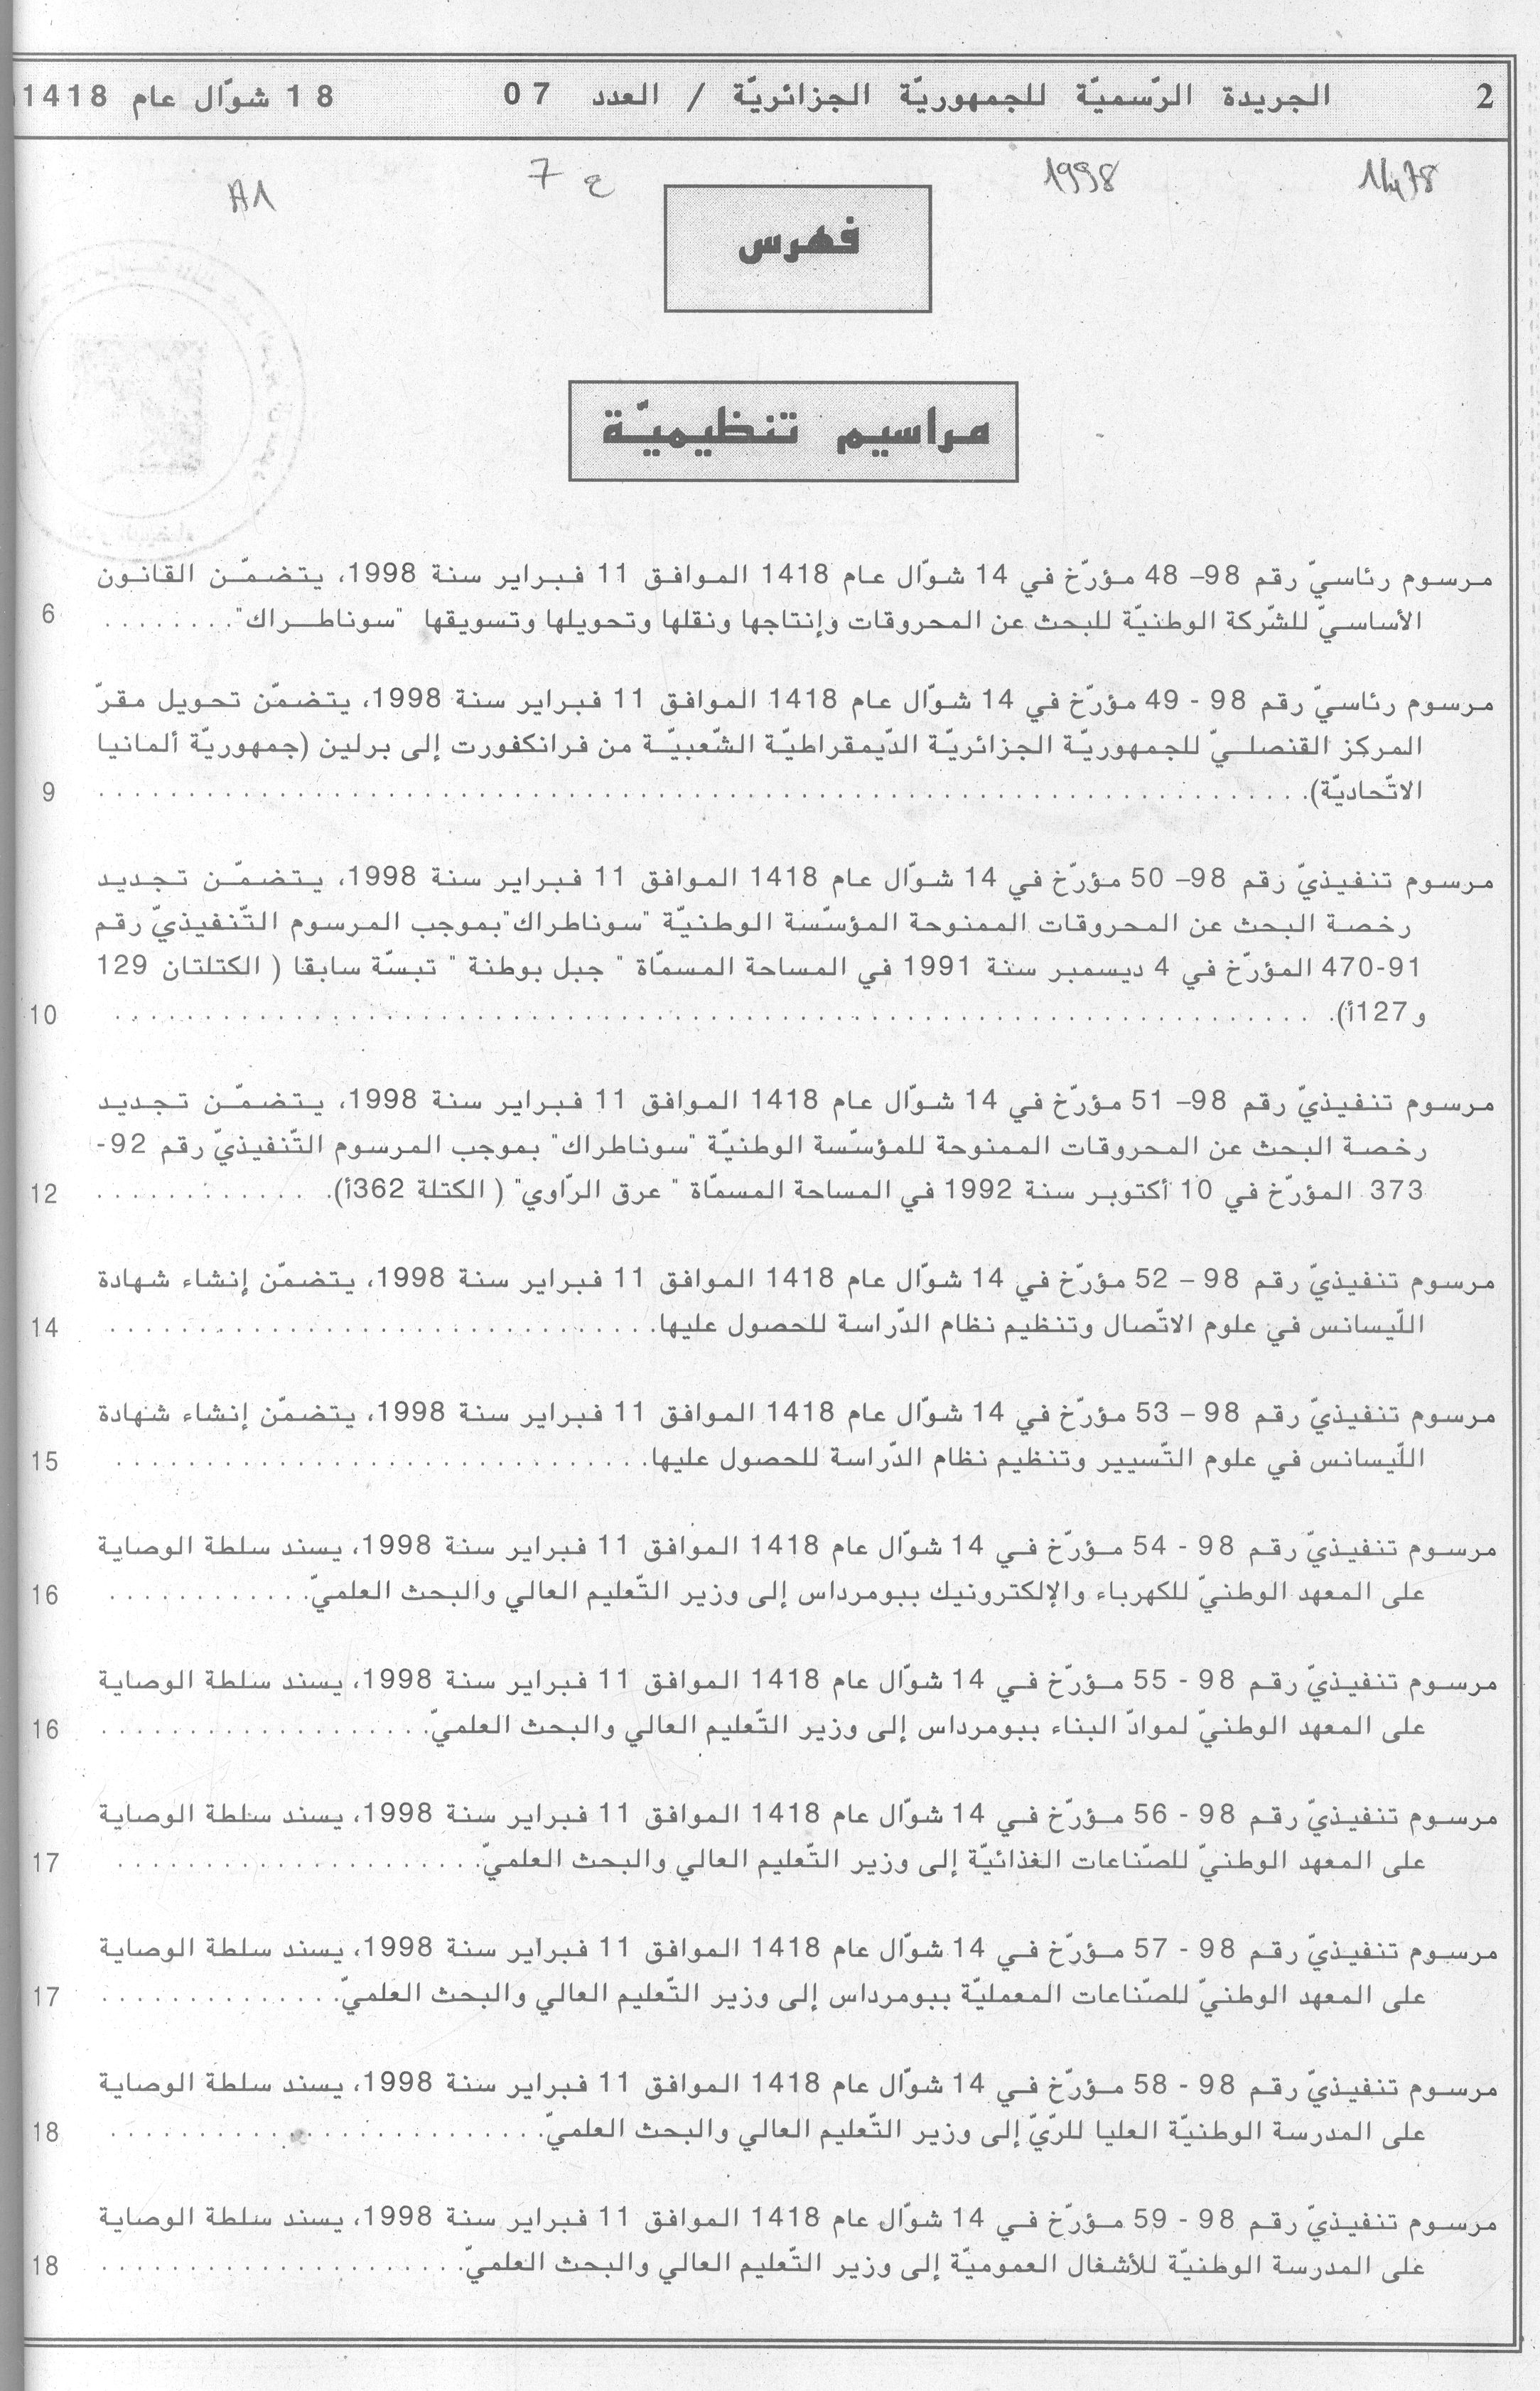 2 الجريدة الرّسميّة للجمهوريّة الجزائريّة / العدد 07 18 شوّال عام 1418
1998 ع 7 A1
فهرس
مراسيم تنظيميّة
مرسوم رئاسيّ رقم 98– 48 مؤرّخ في 14 شوّال عام 1418 الموافق 11 فبراير سنة 1998، يتضمّن القانون
الأساسيّ للشّركة الوطنيّة للبحث عن المحروقات وإنتاجها ونقلها وتحويلها وتسويقها "سوناطراك"........ 6
مرسوم رئاسيّ رقم 98 - 49 مؤرّخ في 14 شوّال عام 1418 الموافق 11 فبراير سنة 1998، يتضمّن تحويل مقرّ
المركز القنصليّ للجمهوريّة الجزائريّة الدّيمقراطيّة الشّعبيّة من فرانكفورت إلى برلين (جمهوريّة ألمانيا
الاتّحاديّة)........ 9
مرسوم تنفيذيّ رقم 98– 50 مؤرّخ في 14 شوّال عام 1418 الموافق 11 فبراير سنة 1998، يتضمّن تجديد
رخصة البحث عن المحروقات الممنوحة المؤسّسة الوطنيّة "سوناطراك"بموجب المرسوم التّنفيذيّ رقم
91-470 المؤرّخ في 4 ديسمبر سنة 1991 في المساحة المسمّاة " جبل بوطنة " تبسّة سابقا ( الكتلتان 129
و127أ)........ 10
مرسوم تنفيذيّ رقم 98– 51 مؤرّخ في 14 شوّال عام 1418 الموافق 11 فبراير سنة 1998، يتضمّن تجديد
رخصة البحث عن المحروقات الممنوحة للمؤسّسة الوطنيّة "سوناطراك" بموجب المرسوم التّنفيذيّ رقم 92-
373 المؤرّخ في 10 أكتوبر سنة 1992 في المساحة المسمّاة " عرق الرّاوي" ( الكتلة 362أ)........ 12
مرسوم تنفيذيّ رقم 98 – 52 مؤرّخ في 14 شوّال عام 1418 الموافق 11 فبراير سنة 1998، يتضمّن إنشاء شهادة
اللّيسانس في علوم الاتّصال وتنظيم نظام الدّراسة للحصول عليها........ 14
مرسوم تنفيذيّ رقم 98 – 53 مؤرّخ في 14 شوّال عام 1418 الموافق 11 فبراير سنة 1998، يتضمّن إنشاء شهادة
اللّيسانس في علوم التّسيير وتنظيم نظام الدّراسة للحصول عليها........ 15
مرسوم تنفيذيّ رقم 98 - 54 مؤرّخ في 14 شوّال عام 1418 الموافق 11 فبراير سنة 1998، يسند سلطة الوصاية
على المعهد الوطنيّ للكهرباء والإلكترونيك ببومرداس إلى وزير التّعليم العالي والبحث العلميّ........ 16
مرسوم تنفيذيّ رقم 98 - 55 مؤرّخ في 14 شوّال عام 1418 الموافق 11 فبراير سنة 1998، يسند سلطة الوصاية
على المعهد الوطنيّ لموادّ البناء ببومرداس إلى وزير التّعليم العالي والبحث العلميّ........ 16
مرسوم تنفيذيّ رقم 98 - 56 مؤرّخ في 14 شوّال عام 1418 الموافق 11 فبراير سنة 1998، يسند سلطة الوصاية
على المعهد الوطنيّ للصّناعات الغذائيّة إلى وزير التّعليم العالي والبحث العلميّ........ 17
مرسوم تنفيذيّ رقم 98 - 57 مؤرّخ في 14 شوّال عام 1418 الموافق 11 فبراير سنة 1998، يسند سلطة الوصاية
على المعهد الوطنيّ للصّناعات المعمليّة ببومرداس إلى وزير التّعليم العالي والبحث العلميّ........ 17
مرسوم تنفيذيّ رقم 98 - 58 مؤرّخ في 14 شوّال عام 1418 الموافق 11 فبراير سنة 1998، يسند سلطة الوصاية
على المدرسة الوطنيّة العليا للرّيّ إلى وزير التّعليم العالي والبحث العلميّ........ 18
مرسوم تنفيذيّ رقم 98 - 59 مؤرّخ في 14 شوّال عام 1418 الموافق 11 فبراير سنة 1998، يسند سلطة الوصاية
على المدرسة الوطنيّة للأشغال العموميّة إلى وزير التّعليم العالي والبحث العلميّ........ 18